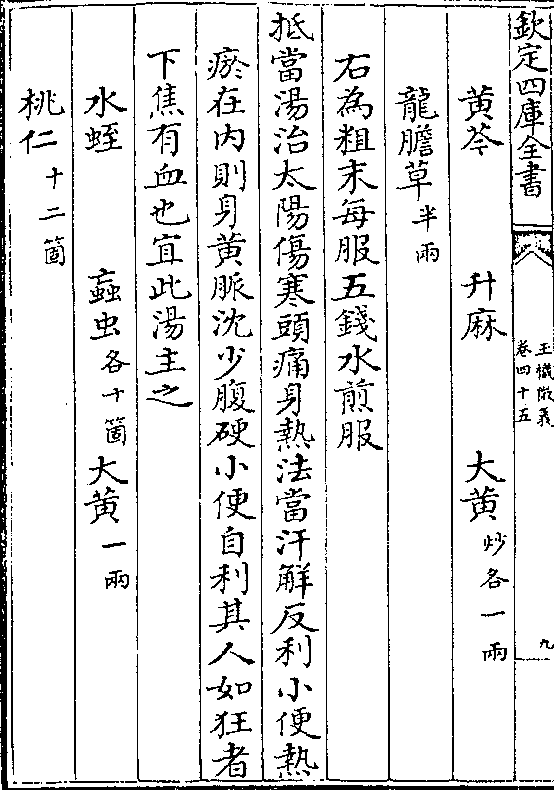 欽定四庫全書
玉機微義
卷四十五
九
黄芩 升麻 大黄炒各一兩
龍膽草半兩
右為粗末每服五錢水煎服
抵當湯治太陽傷寒頭痛身熱法當汗解反利小便熱
瘀在内則身黄脈沈少腹硬小便自利其人如狂者
下焦有血也宜此湯主之
水蛭 蝱虫各十箇 大黄一兩
桃仁十二箇